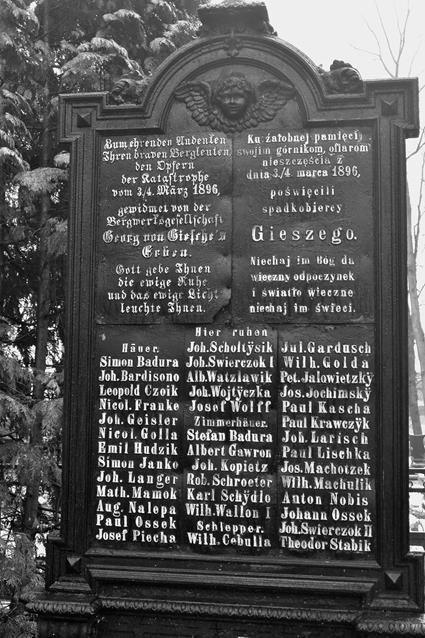 Zum ehrenden Andenken
Ihren braven Bergleuten
den Opfern
der Katastrophe
vom 3/4. März 1896,
gewidmet von der
Bergwerksgesellschaft
Georg von Giesche's
Erben.
Gott gebe Ihnen
die ewige Ruhe
und das ewige Licht
leuchte Ihnen.
Ku żałobnej pamięci
swojim górnikom, ofiarom
nieszczęścia z
dnia 3/4. marca 1896,
poświęcili
spadkobiercy
Gieszego.
Niechaj im Bóg da
wieczny odpoczynek
i światło wieczne
niechaj im świeci.
Hier ruhen
Häuer.
Simon Badura
Joh. Bardisono
Leopold Czoik
Nicol. Franke
Joh. Geisler
Nicol. Golla
Emil Hudzik
Simon Janko
Joh. Langer
Math. Mamok
Aug. Nalepa
Paul Ossek
Josef Piecha
Joh. Scholtÿsik
Joh. Swierczok I
Alb. Watzlawik
Joh. Wojtÿczka
Josef Wolff
Zimmerhäuer.
Stefan Badura
Albert Gawron
Joh. Kopietz
Rob. Schroeter
Karl Schÿdło
Wilh. Wallon I
Schlepper.
Wilh. Cebulla
Jul. Gardusch
Wilh. Golda
Pet. Jalowietzkÿ
Jos. Jochimskÿ
Paul Kascha
Paul Krawczÿk
Joh. Larisch
Paul Lischka
Jos. Machotzek
Wilh. Machulik
Anton Nobis
Johann Ossek
Joh. Swierczok II
Theodor Stabik